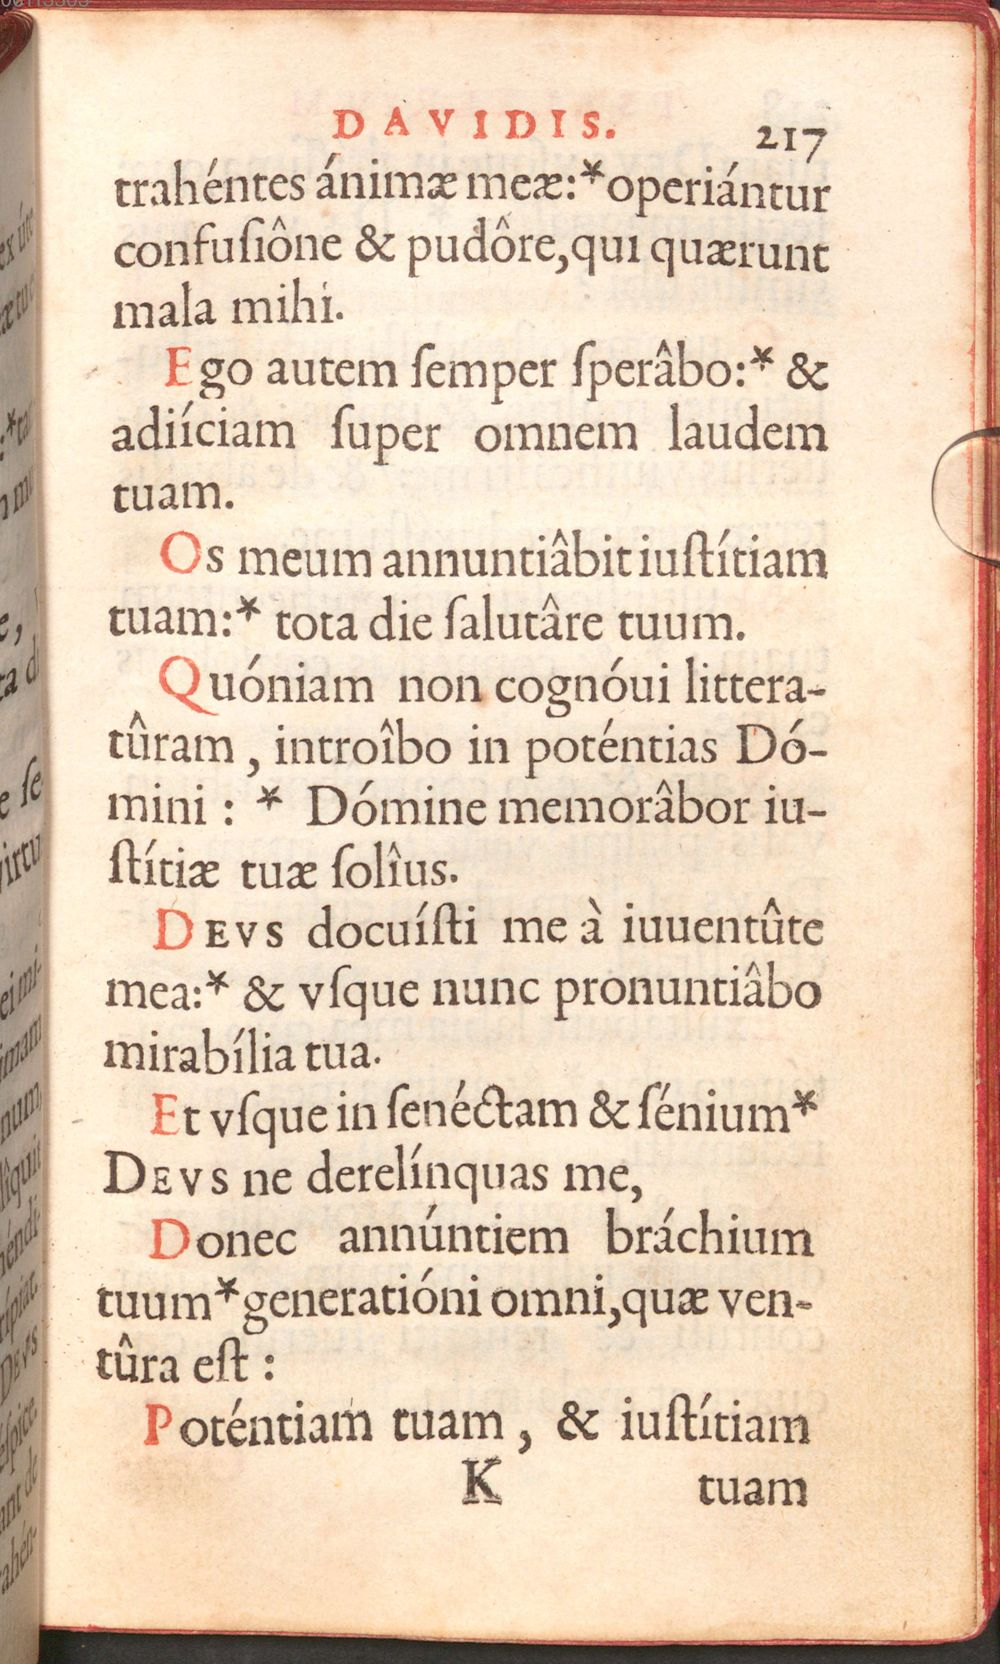 DAVIDIS. 217
trahéntes ánimæ meæ:*operiántur
confuſiône & pudôre,qui quærunt
mala mihi.
Ego autem ſemper ſperâbo:* &
adiíciam ſuper omnem laudem
tuam.
Os meum annuntiâbit iuſtítiam
tuam:* tota die ſalutâre tuum.
Quóniam non cognóui littera-
tûram , introîbo in poténtias Dó-
mini : * Dómine memorâbor iu-
ſtítiæ tuæ ſolîus.
DEVS docuíſti me à iuuentûte
mea:* & vſque nunc pronuntiâbo
mirabília tua.
Et vſque in ſenéctam & ſénium*
DEVS ne derelínquas me,
Donec annúntiem bráchium
tuum*generatióni omni,quæ ven-
tûra eſt :
Poténtiam tuam , & iuſtítiam
K tuam